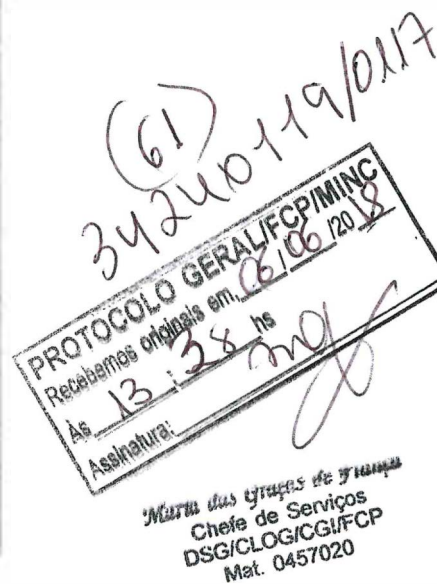 (61)
34240119/0117
PROTOCOLO GERAL/FCP/MINC
Recebemos originais em, 06/06/2018
Às 13:38 hs
Assinatura:
Maria das Graças de França
Chefe de Serviços
DSG/CLOG/CGI/FCP
Mat. 0457020